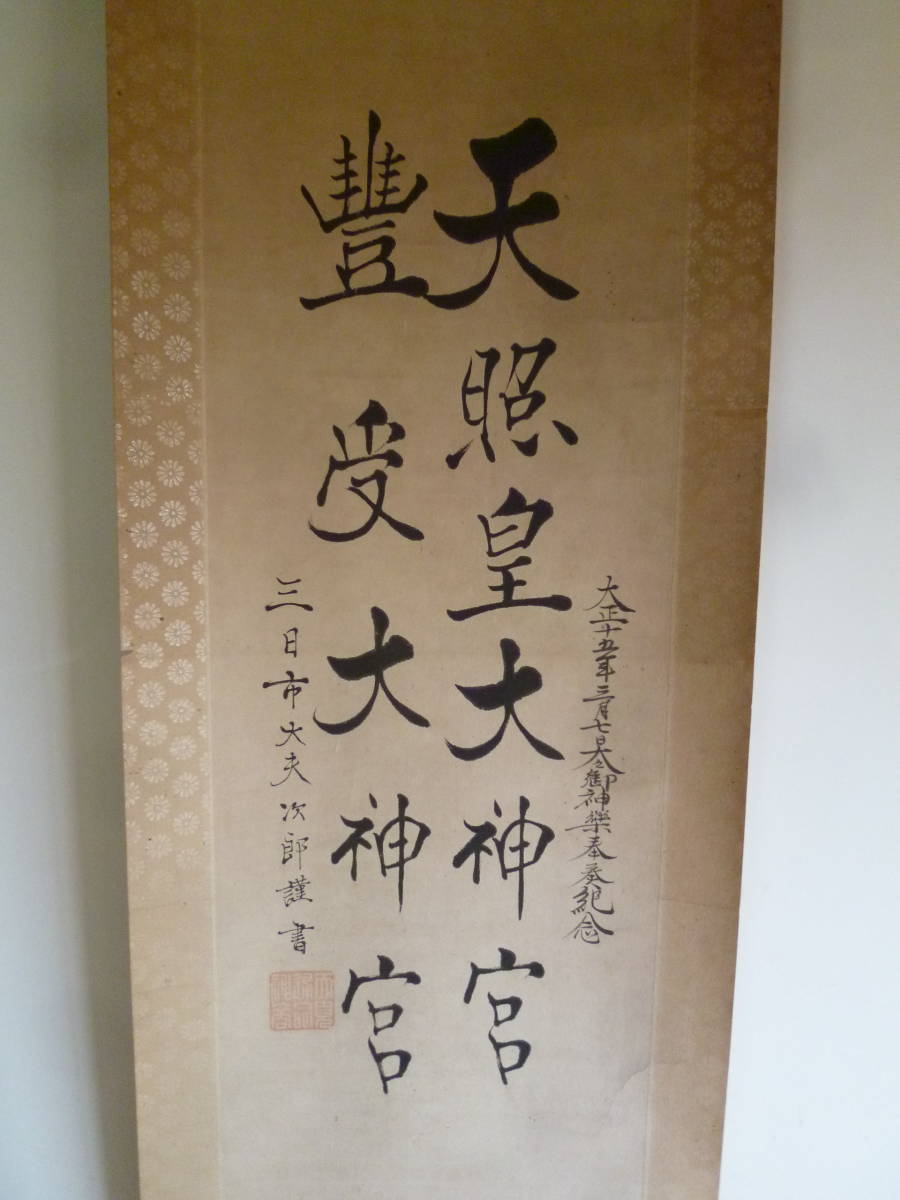 大正十五年三月七日大々御神樂奉奏紀念
天照皇大神宮
豐受大神宮
三日市大夫次郎謹書